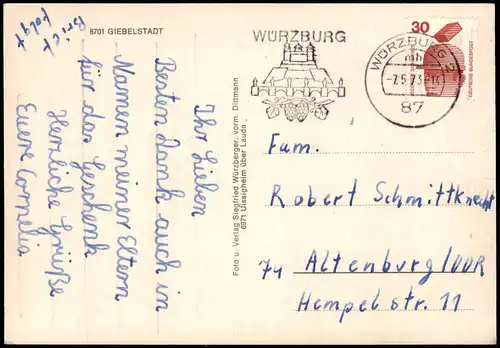 8701 GIEBELSTADT
Brief
folgt
Ihr Lieben
Besten Dank auch in
Namen meiner Eltern
für das Geschenk
Herzliche Grüße
Euere Cornelia
Foto u. Verlag Siegfried Würzberger, vorm. Dittmann
6971 Uissigheim über Lauda
WÜRZBURG
WÜRZBURG 2
mh
-7.5.73-17
87
30
DEUTSCHE BUNDESPOST
Fam.
Robert Schmittknecht
74 Altenburg/DDR
Hempelstr. 11